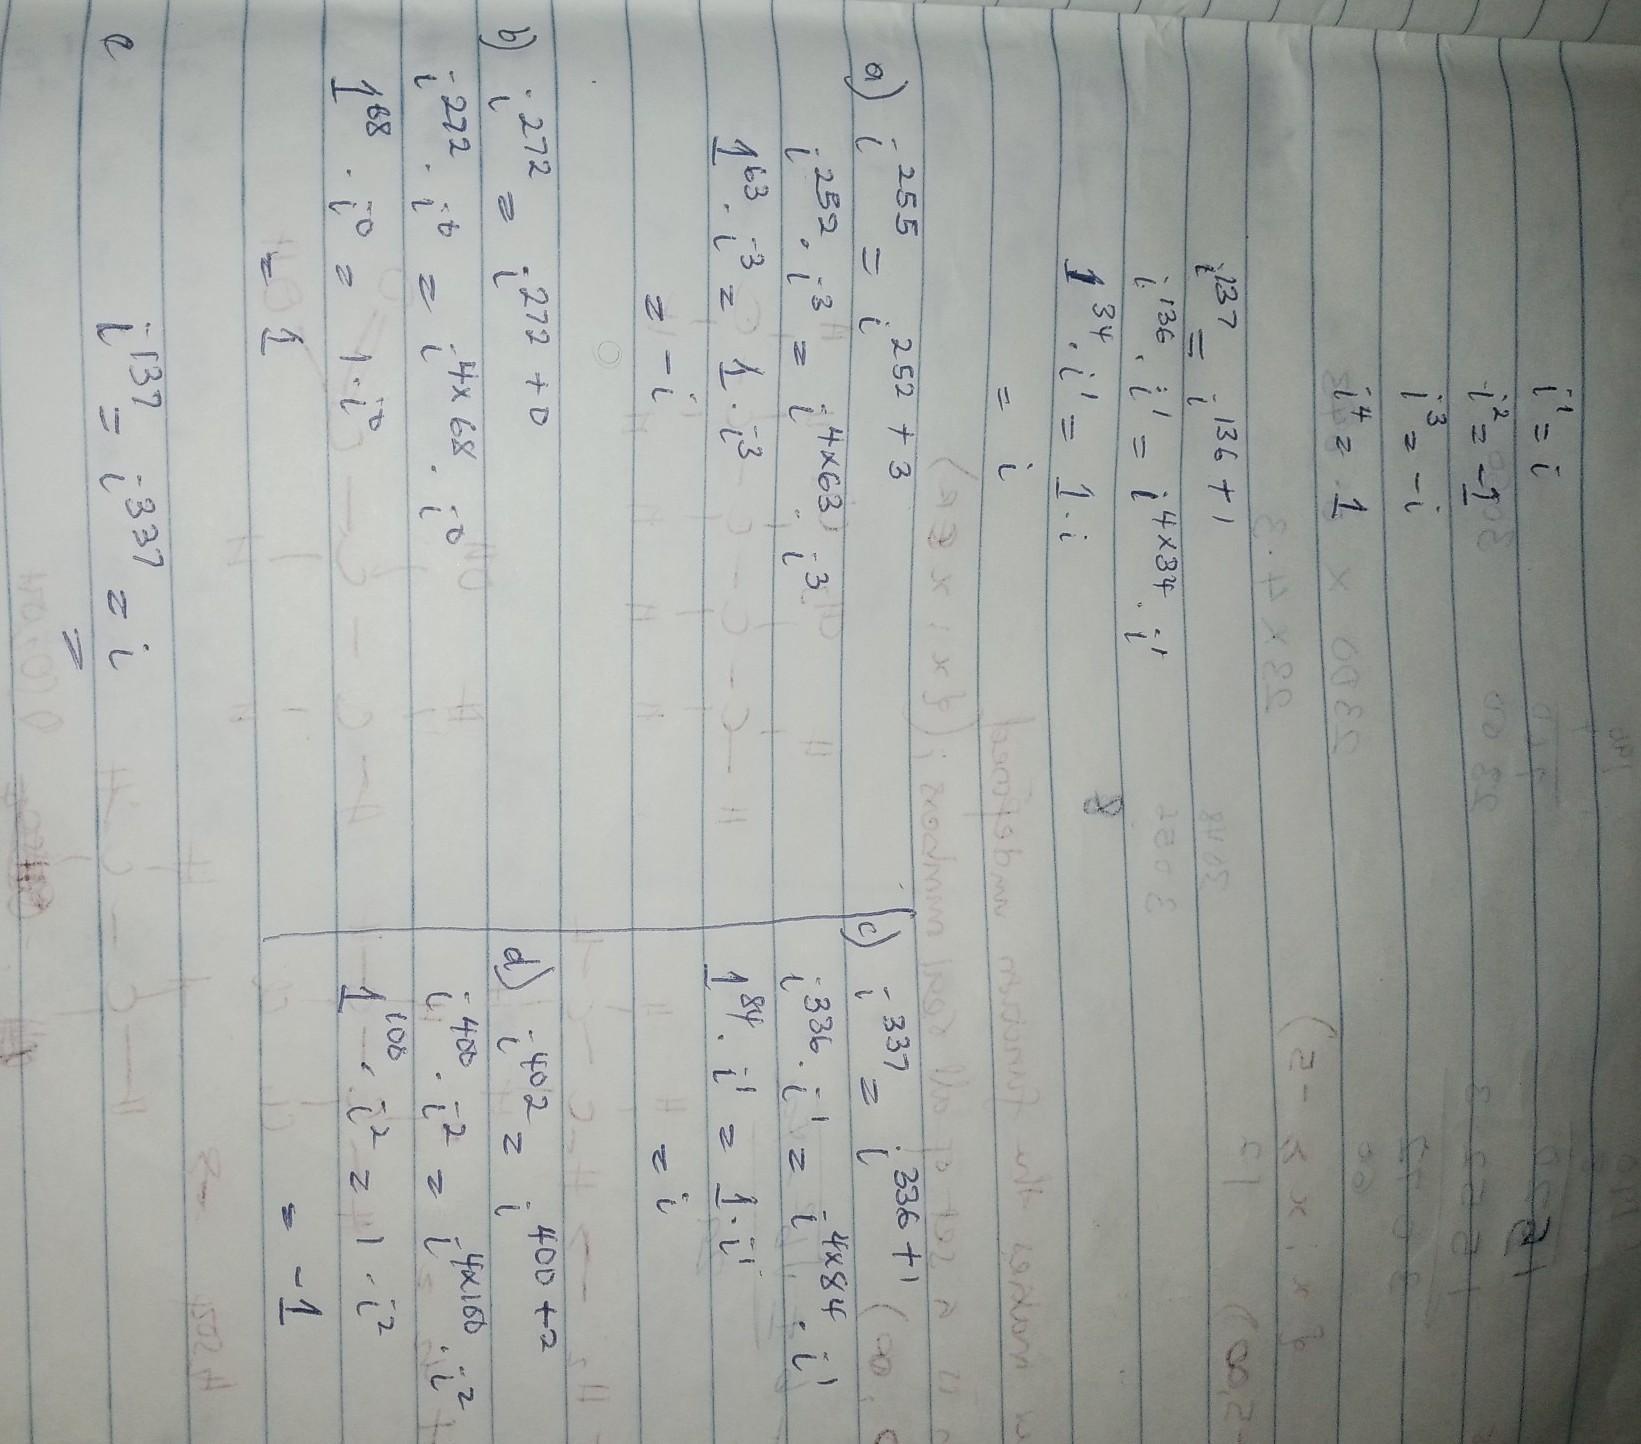 i¹ = i
i² = -1
i³ = -i
i⁴ = 1
i¹³⁷ = i¹³⁶⁺¹
i¹³⁶ . i¹ = i⁴ˣ³⁴ . i¹
1³⁴ . i¹ = 1 . i
= i
a) i²⁵⁵ = i²⁵²⁺³
i²⁵² . i³ = i⁴ˣ⁶³ . i³
1⁶³ . i³ = 1 . i³
= -i
b) i²⁷² = i²⁷²⁺⁰
i²⁷² . i⁰ = i⁴ˣ⁶⁸ . i⁰
1⁶⁸ . i⁰ = 1 . i⁰
= 1
c) i³³⁷ = i³³⁶⁺¹
i³³⁶ . i¹ = i⁴ˣ⁸⁴ . i¹
1⁸⁴ . i¹ = 1 . i¹
= i
d) i⁴⁰² = i⁴⁰⁰⁺²
i⁴⁰⁰ . i² = i⁴ˣ¹⁰⁰ . i²
1¹⁰⁰ . i² = 1 . i²
= -1
e i¹³⁷ = i³³⁷ = i